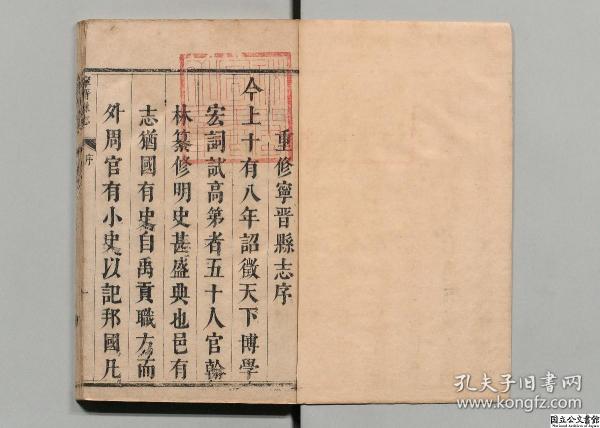 重修寧晉縣志序
今上十有八年詔徵天下博學
宏詞試高第者五十人官翰
林纂修明史甚盛典也邑有
志猶國有史自禹貢職方而
外周官有小史以記邦國凡
寧晉縣志
序
一
孔夫子旧书网
www.kongfz.com
国立公文書館
National Archives of Japan